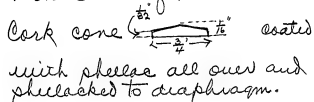 Cork cone 1/32" 1/16" coated
3/4"
with shellac all over and
shellacked to diaphragm.